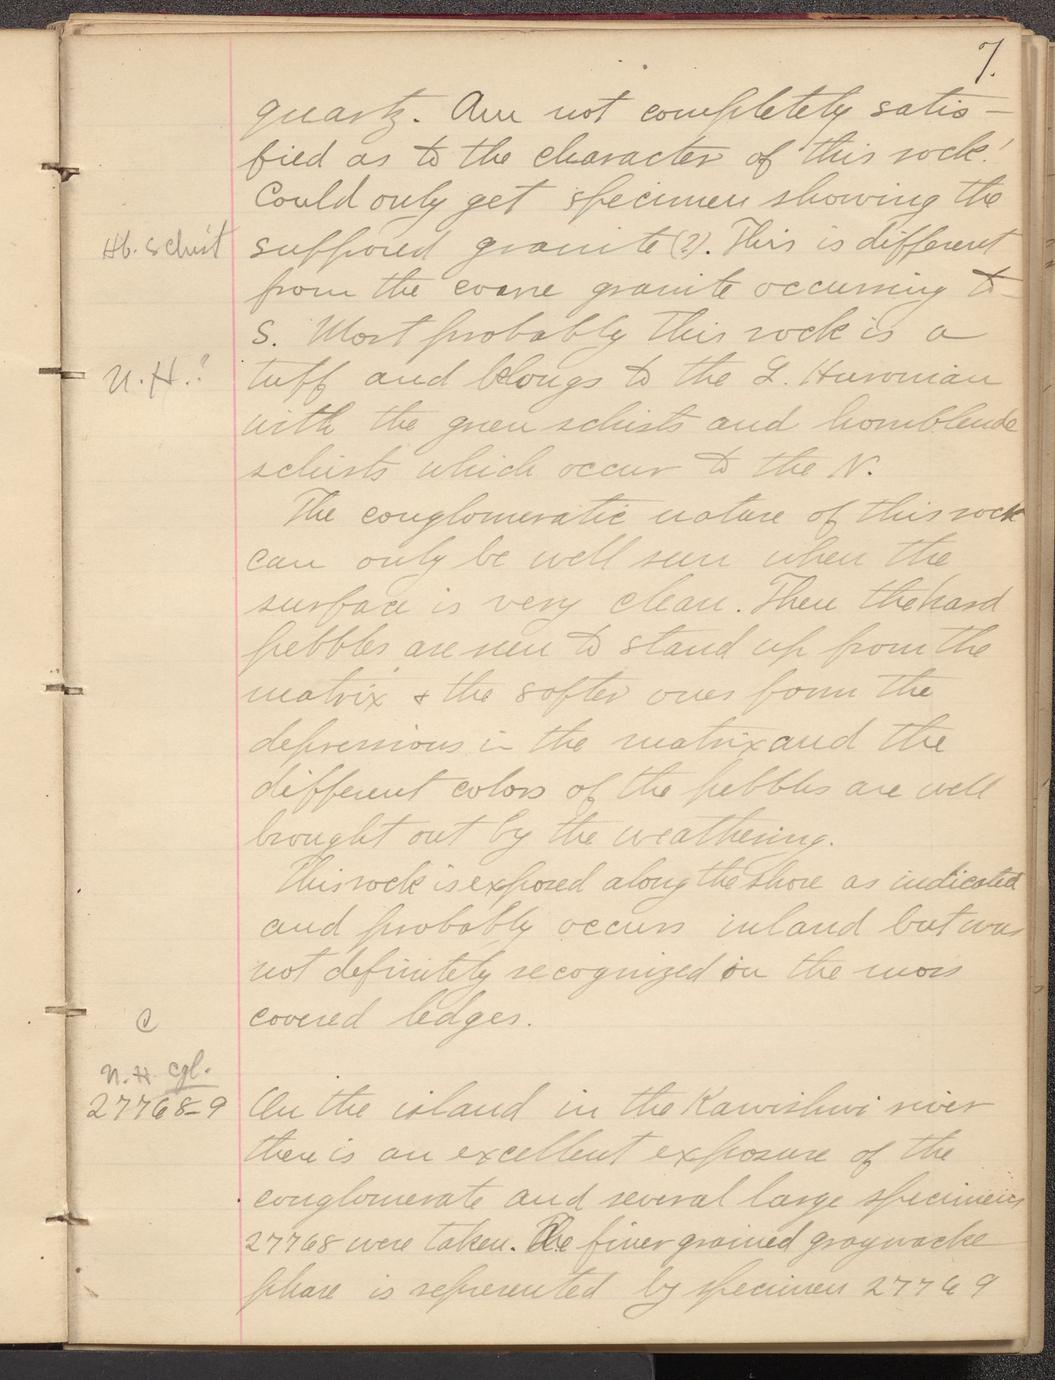 7.
quartz. Am not completely satis-
fied as to the character of this rock.
Could only get specimen showing the
Hb. schist
supposed granite (?). This is different
from the coarse granite occurring to
S. Most probably this rock is a
U.H.?
tuff and belongs to the L. Huronian
with the green schists and hornblende
schists which occur to the N.
The conglomeratic nature of this rock
can only be well seen when the
surface is very clean. Then the hard
pebbles are seen to stand up from the
matrix & the softer ones form the
depressions in the matrix and the
different colors of the pebbles are well
brought out by the weathering.
This rock is exposed along the shore as indicated
and probably occurs inland but was
not definitely recognized in the moss
covered ledges.
C
U.H. cgl.
27768-9
On the island in the Kawishwi river
there is an excellent exposure of the
conglomerate and several large specimens
27768 were taken. The finer grained graywacke
phase is represented by specimen 27769